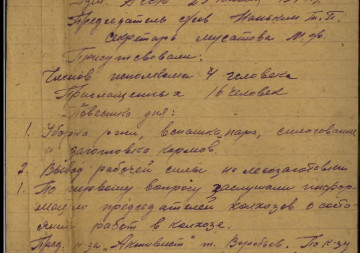 Председатель с/сов Панькин Т.П.
Секретарь Мусатова М.Ф.
Присутствовали:
Членов исполкома 4 человека
Приглашенных 16 человек
Повестка дня:
1. Уборка ржи, вспашка пара, силосование
и заготовка кормов.
2. Вывод рабочей силы на лесозаготовки
1. По первому вопросу заслушали информ
мацию председателей колхозов о состо
янии работ в колхозе.
Пред. к-за "Активист" т. Воробьев. По к-зу